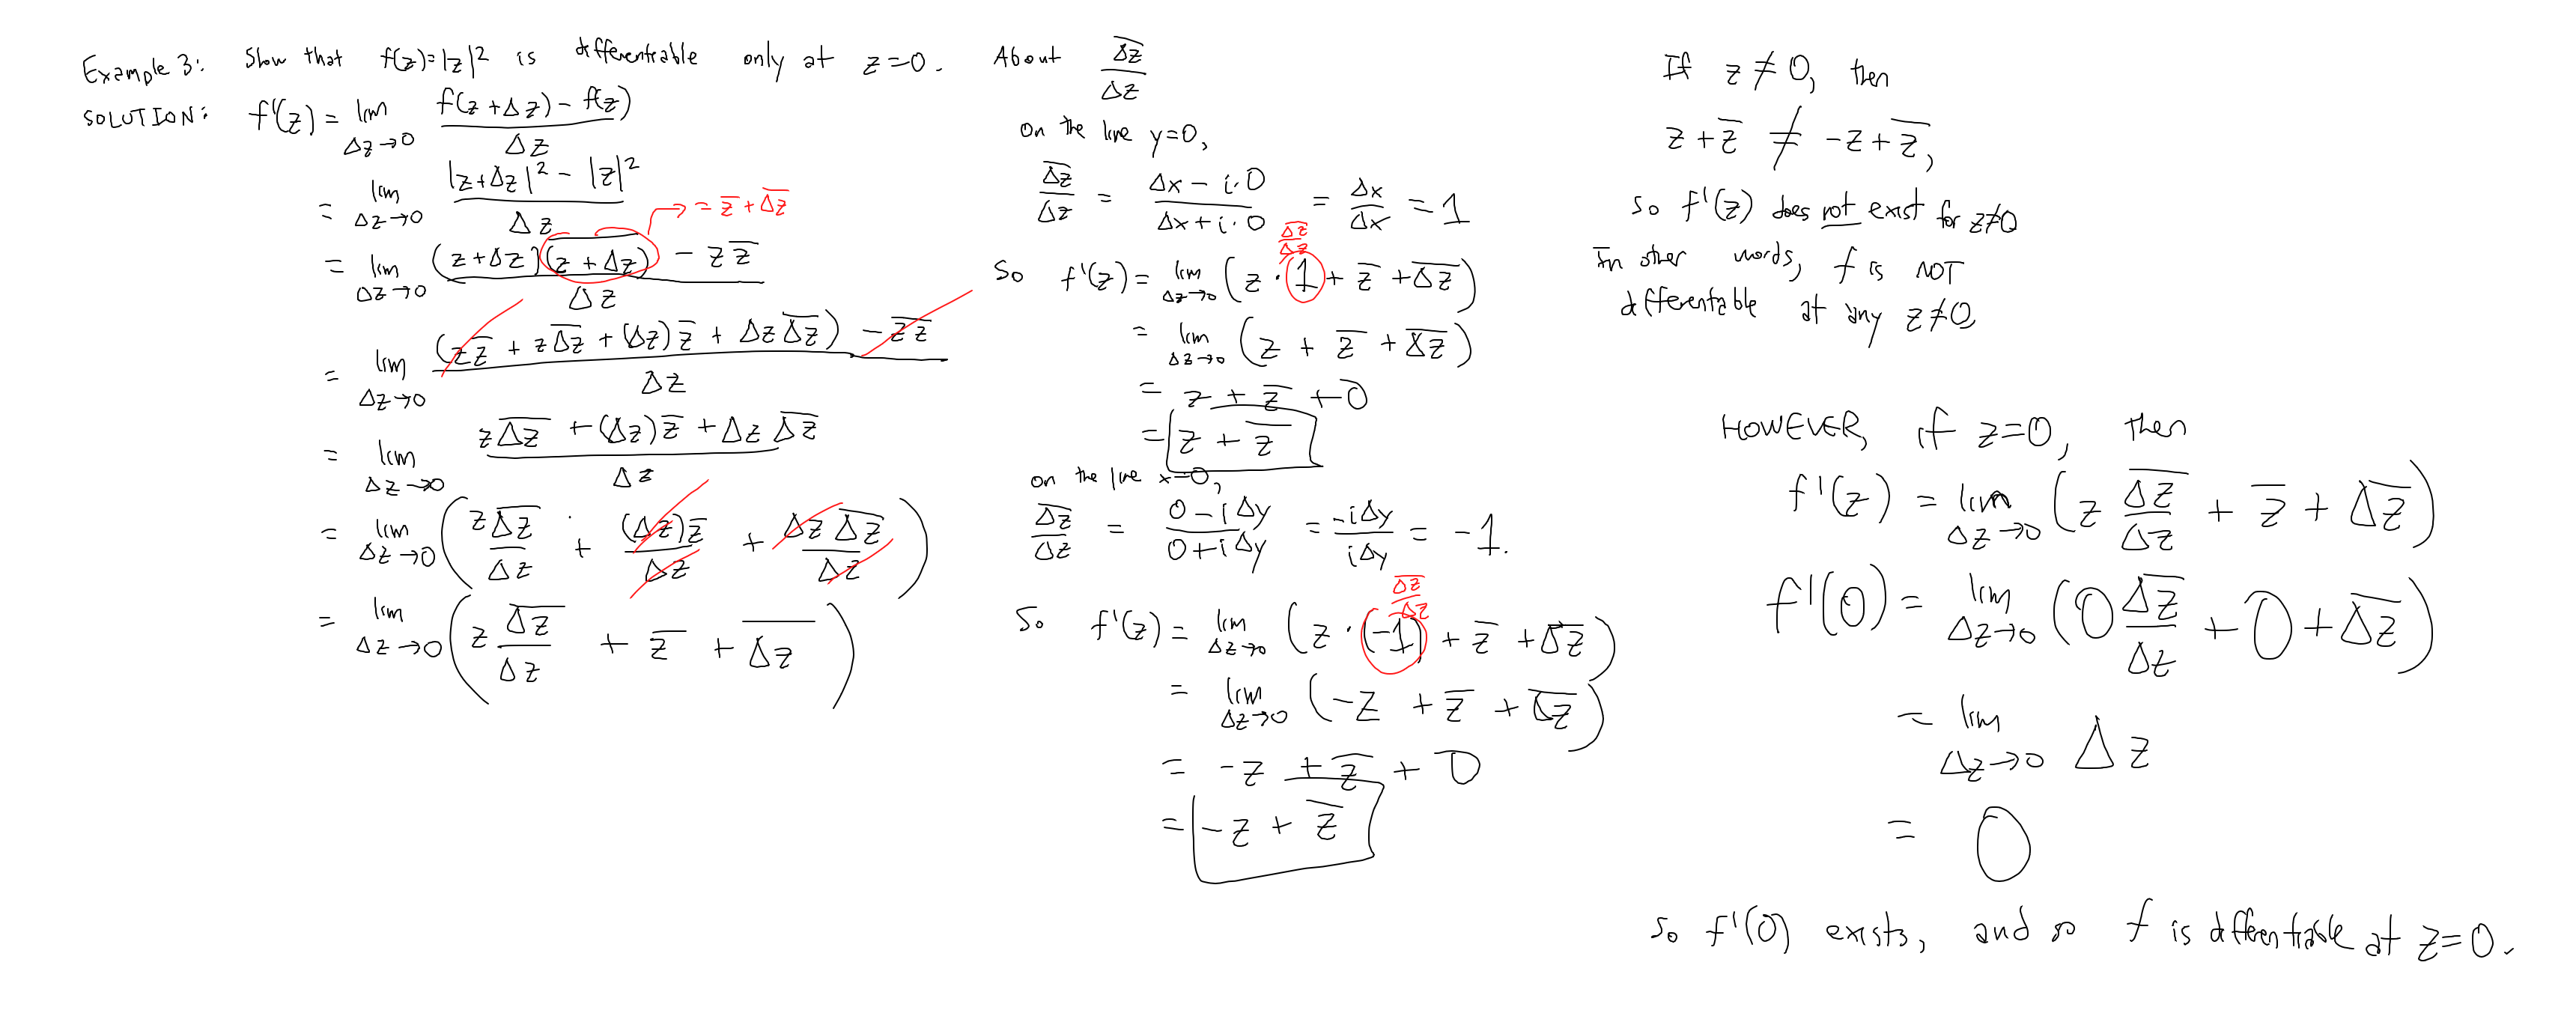 Example 3: Show that f(z)=|z|² is differentiable only at z=0.
SOLUTION: f'(z) = lim_{Δz→0} (f(z+Δz) − f(z))/Δz
= lim_{Δz→0} (|z+Δz|² − |z|²)/Δz
→ = z̅ + \overline{Δz}
= lim_{Δz→0} ((z+Δz)(\overline{z+Δz}) − z z̅)/Δz
= lim_{Δz→0} ((z z̅ + z \overline{Δz} + (Δz) z̅ + Δz \overline{Δz}) − z z̅)/Δz
= lim_{Δz→0} (z \overline{Δz} + (Δz) z̅ + Δz \overline{Δz})/Δz
= lim_{Δz→0} (z \overline{Δz}/Δz + (Δz) z̅/Δz + Δz \overline{Δz}/Δz)
= lim_{Δz→0} (z \overline{Δz}/Δz + z̅ + \overline{Δz})
About \overline{Δz}/Δz
On the line y=0,
\overline{Δz}/Δz = (Δx − i·0)/(Δx + i·0) = Δx/Δx = 1
\overline{Δz}/Δz
So f'(z) = lim_{Δz→0} (z · 1 + z̅ + \overline{Δz})
= lim_{Δz→0} (z + z̅ + \overline{Δz})
= z + z̅ + 0
= z + z̅
on the line x=0,
\overline{Δz}/Δz = (0 − iΔy)/(0 + iΔy) = −iΔy/iΔy = −1.
\overline{Δz}/Δz
So f'(z) = lim_{Δz→0} (z · (−1) + z̅ + \overline{Δz})
= lim_{Δz→0} (−z + z̅ + \overline{Δz})
= −z + z̅ + 0
= −z + z̅
If z ≠ 0, then
z + z̅ ≠ −z + z̅,
so f'(z) does not exist for z≠0
In other words, f is NOT
differentable at any z≠0
HOWEVER, if z=0, then
f'(z) = lim_{Δz→0} (z \overline{Δz}/Δz + z̅ + \overline{Δz})
f'(0) = lim_{Δz→0} (0 \overline{Δz}/Δz + 0 + \overline{Δz})
= lim_{Δz→0} Δz
= 0
So f'(0) exists, and so f is differentiable at z=0.